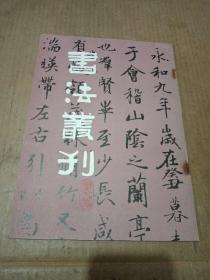 永和九年歲在癸暮
于會稽山陰之蘭亭
也群賢畢至少長咸
有
竹又
湍暎帶左右引
書法叢刊